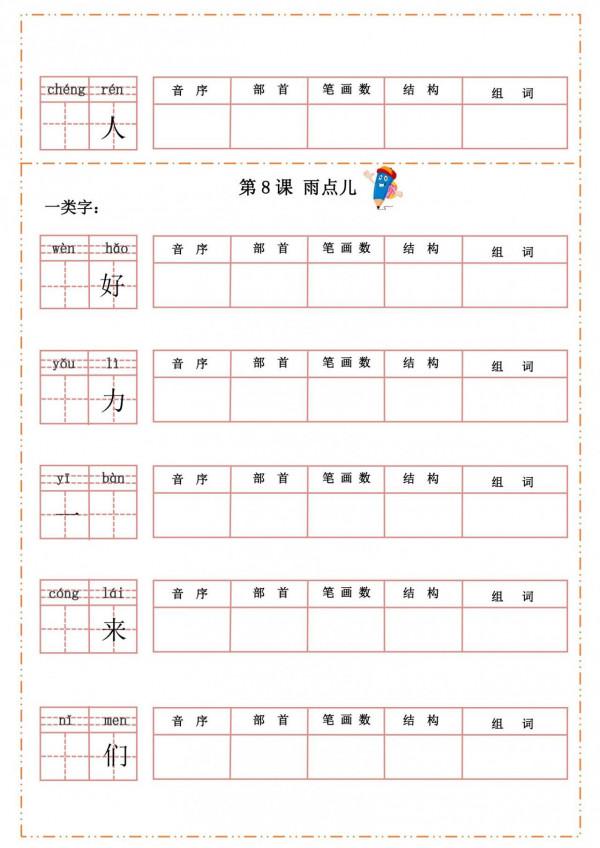 chéng rén 音 序 部 首 笔 画 数 结 构 组 词
人
第 8 课 雨点儿
一类字：
wèn hǎo 音 序 部 首 笔 画 数 结 构 组 词
好
yǒu lì 音 序 部 首 笔 画 数 结 构 组 词
力
yī bàn 音 序 部 首 笔 画 数 结 构 组 词
一
cóng lái 音 序 部 首 笔 画 数 结 构 组 词
来
nǐ men 音 序 部 首 笔 画 数 结 构 组 词
们